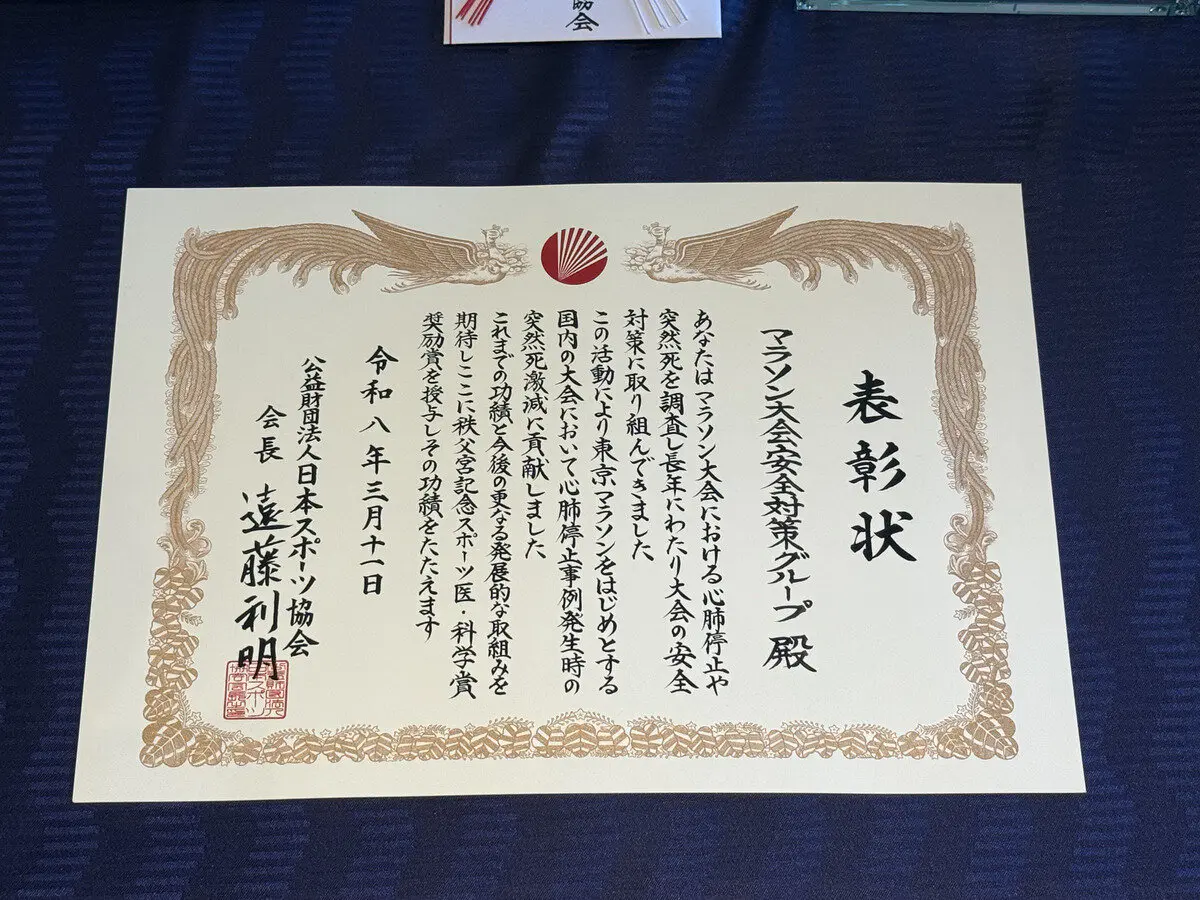 協会
表彰状
マラソン大会安全対策グループ 殿
あなたはマラソン大会における心肺停止や
突然死を調査し長年にわたり大会の安全
対策に取り組んできました
この活動により東京マラソンをはじめとする
国内の大会において心肺停止事例発生時の
突然死激減に貢献しました
これまでの功績と今後の更なる発展的な取組みを
期待しここに秩父宮記念スポーツ医・科学賞
奨励賞を授与しその功績をたたえます
令和八年三月十一日
公益財団法人日本スポーツ協会
会長 遠藤利明